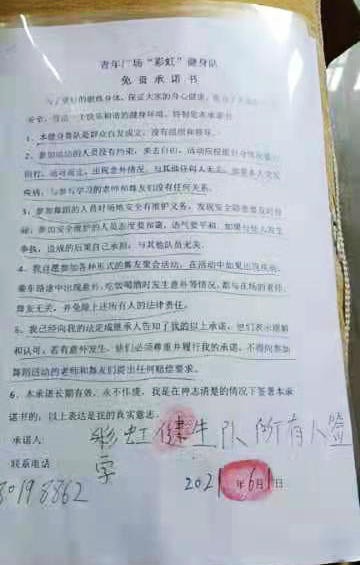 青年广场“彩虹”健身队
免责承诺书
为了更好的锻炼身体，保证大家的身心健康，
安全，营造一个快乐和谐的健身环境，特制定本承诺书
1、本健身舞队是群众自发成立，没有组织和领导。
2、参加活动的人员没有约束，来去自由，活动应根据自身情况量力
而行，适可而止，出现意外情况，与其他任何人无关，如果本人突发
疾病，与参与学习的老师和舞友们没有任何关系。
3、参加舞蹈的人员对场地安全有维护义务，发现安全隐患要及时排
除，参加安全维护的人员态度要和蔼，语气要平和，如果与他人发生
争执，造成的后果自己承担，与其他队员无关。
4、我自愿参加各种形式的舞友聚会活动，在活动中如果出现疾病、
乘车路途中出现意外，吃饭喝酒时发生意外等情况，都与在场的老师、
舞友无关，并免除上述所有人的法律责任。
5、我已经向我的法定或继承人告知了我的以上承诺，他们表示理解
和认可，若有意外发生，他们必须尊重并履行我的承诺，不得向参加
舞蹈活动的老师和舞友们提出任何赔偿要求。
6、本承诺长期有效，永不作废，我是在神志清楚的情况下签署本承
诺书的，以上表达是我的真实意志。
承诺人：彩虹健生队所有人签
字
联系电话
80198862
2021年6月1日